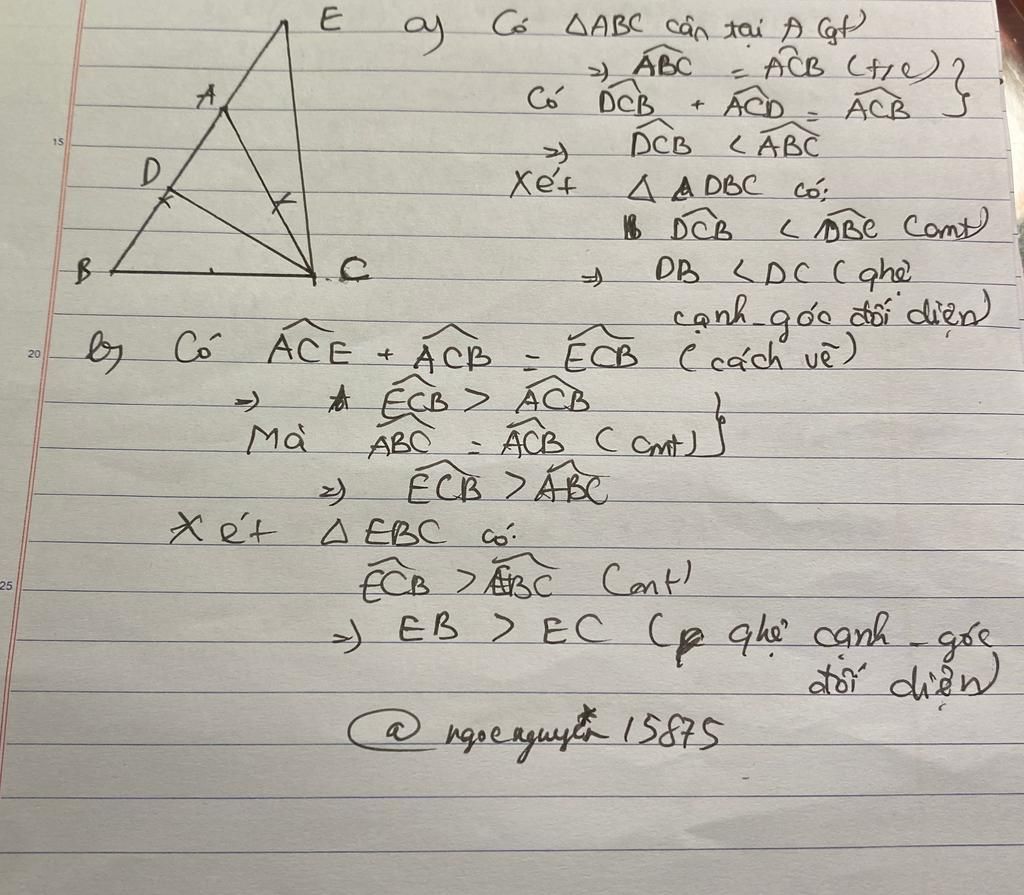 E
A
D
B
C
15
20
25
a) Có △ABC cân tại A (gt)
=> ABC = ACB (t/c) }
Có DCB + ACD = ACB
=> DCB < ABC
Xét △ DBC có:
DCB < DBC (cmt)
=> DB < DC (qhệ
cạnh-góc đối diện)
b) Có ACE + ACB = ECB (cách vẽ)
=> ECB > ACB
Mà ABC = ACB (cmt) }
=> ECB > ABC
Xét △ EBC có:
ECB > EBC (cmt)
=> EB > EC (qhệ cạnh-góc
đối diện)
@ngocnguyễn15875